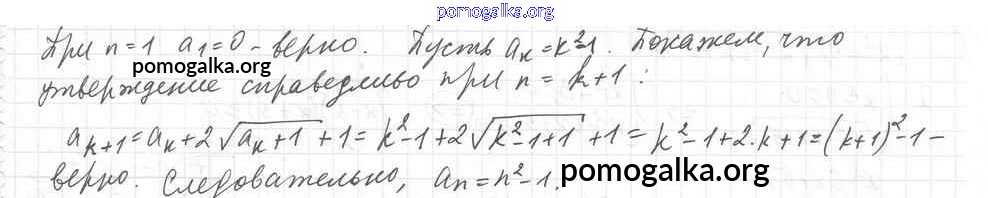 pomogalka.org
При n=1 a₁=0 - верно. Пусть aₖ=k²-1. Покажем, что
pomogalka.org
утверждение справедливо при n=k+1:
aₖ₊₁=aₖ+2√(aₖ+1)+1=k²-1+2√(k²-1+1)+1=k²-1+2·k+1=(k+1)²-1-
верно. Следовательно, aₙ=n²-1.
pomogalka.org